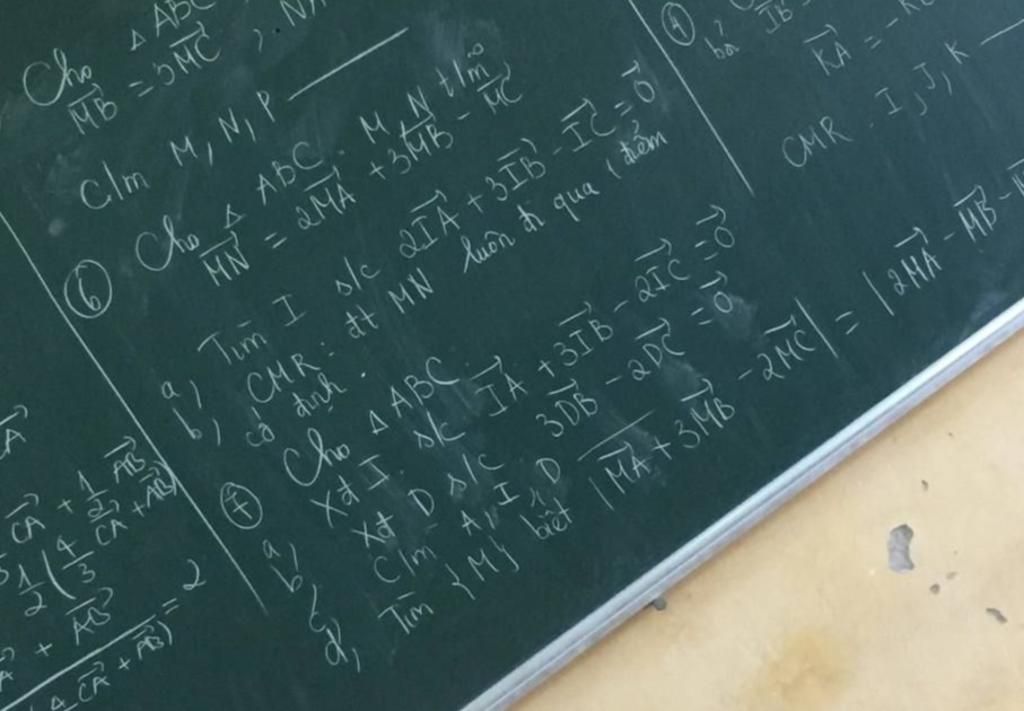 Cho Δ ABC
MB⃗ = 3MC⃗ ,
C/m M, N, P
⑥ Cho Δ ABC . M, N t/m
MN⃗ = 2MA⃗ + 3MB⃗ - MC⃗
a, Tìm I s/c 2IA⃗ + 3IB⃗ - IC⃗ = 0⃗
b, CMR : đt MN luôn đi qua 1 điểm
cố định .
⑦ Cho Δ ABC .
a, Xđ I s/c IA⃗ + 3IB⃗ - 2IC⃗ = 0⃗
b, Xđ D s/c 3DB⃗ - 2DC⃗ = 0⃗
c, C/m A, I, D
d, Tìm {M} biết |MA⃗ + 3MB⃗ - 2MC⃗| = |2MA⃗ - MB⃗ -
b,
IB⃗
KA⃗ = -
CMR I, J, K
CA⃗
CA⃗ + 1/2 AB⃗
1/2 ( 4/3 CA⃗ + AB⃗)
+ AB⃗
CA⃗ + AB⃗) = 2